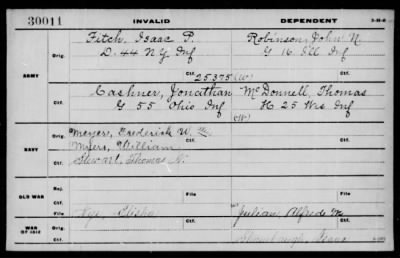 30011 INVALID DEPENDENT 3-35-6
Fitch, Isaac P. Robinson, John N.
Orig. D. 44 N.Y. Inf G 16 Ill Inf
ARMY Ctf. 25375 (W)
Cashner, Jonathan McDonnell, Thomas
Orig. G 55 Ohio Inf K 25 Wis Inf
Ctf. (W)
Meyer, Frederick W.
Orig. Myers, William
NAVY Stewart, Thomas N.
Ctf.
Rej. File
OLD WAR
Ctf. File
Orig. Nye, Elisha Julian, Alfred M
WAR OF 1812
Ctf. Isaac